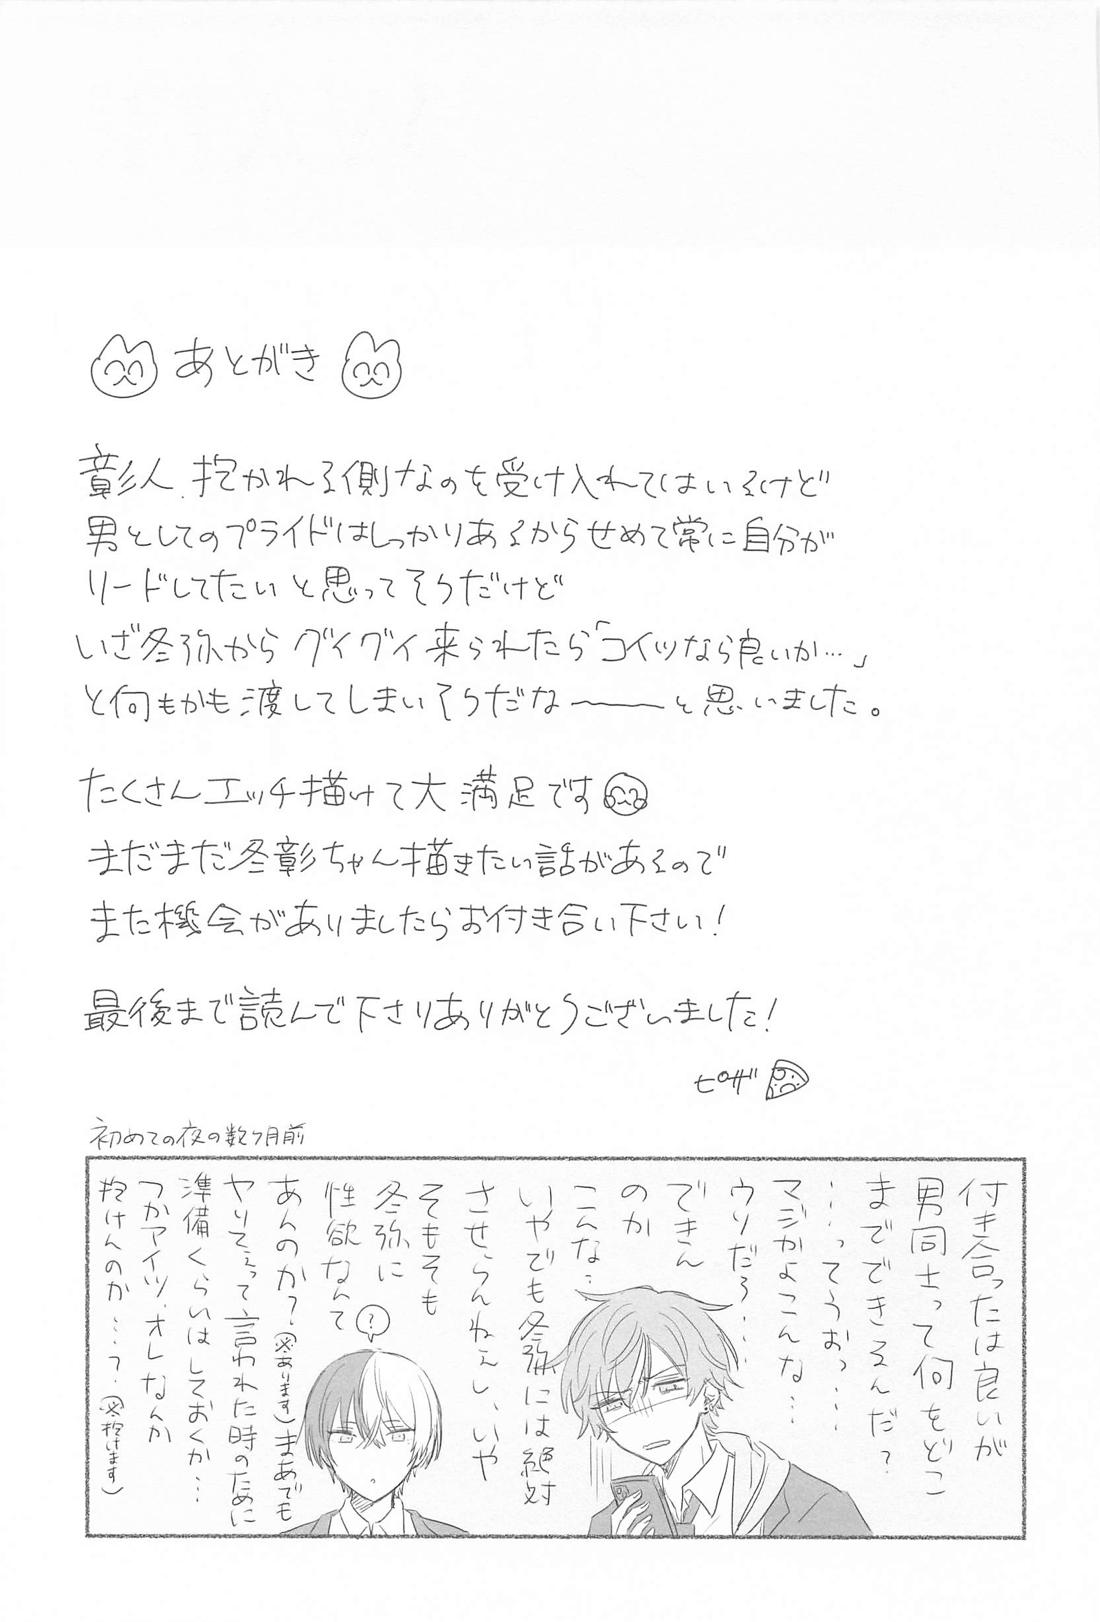 あとがき
彰人、抱かれる側なのを受け入れてはいるけど
男としてのプライドはしっかりあるからせめて常に自分が
リードしてたいと思ってそうだけど
いざ冬弥からグイグイ来られたら「コイツなら良いか…」
と何もかも渡してしまいそうだな〜〜と思いました。
たくさんエッチ描けて大満足です
まだまだ冬彰ちゃん描きたい話があるので
また機会がありましたらお付き合い下さい!
最後まで読んで下さりありがとうございました!
ピザ
初めての夜の数ヶ月前
付き合ったは良いが
男同士って何をどこ
までできるんだ?
…ってうおっ…
マジかよこんな…
ウソだろ…
できん
のか
こんな…
いやでも冬弥には絶対
させらんねぇし、いや
そもそも
冬弥に
性欲なんて
?
あんのか?(※あります)まあでも
ヤりてぇって言われた時のために
準備くらいはしておくか…
つかアイツ、オレなんか
抱けんのか…?(※抱けます)